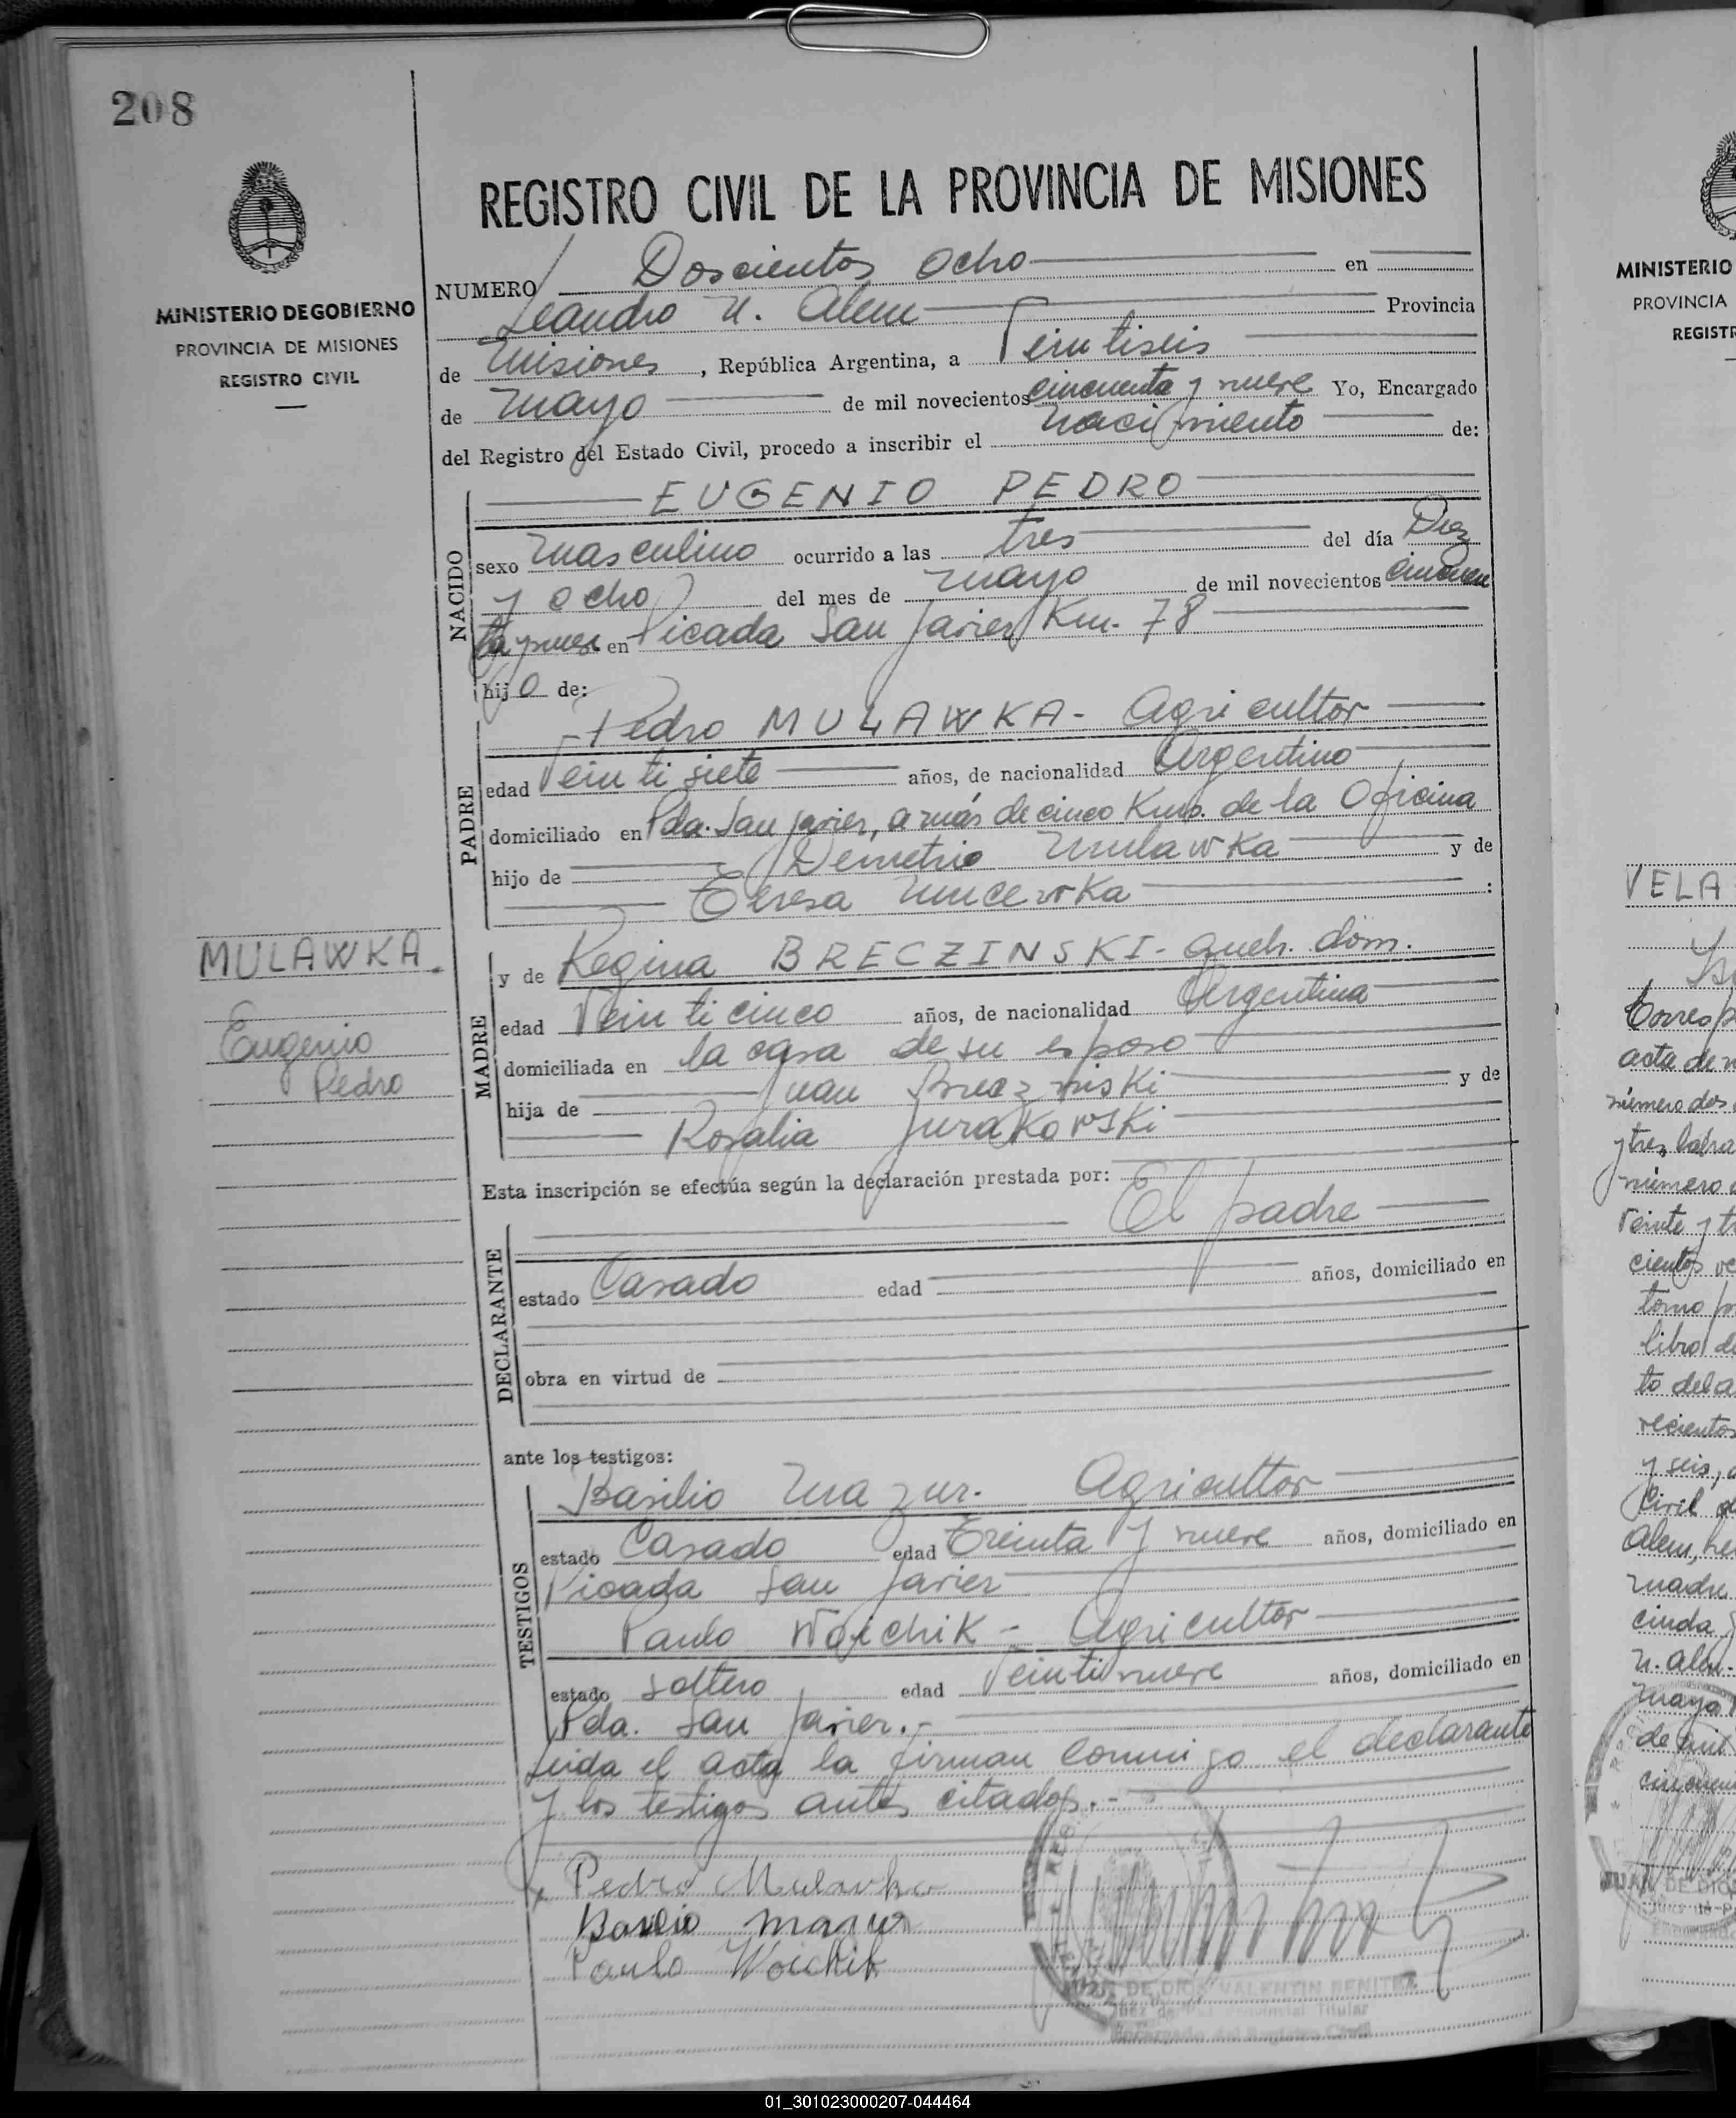 208
MINISTERIO DE GOBIERNO
PROVINCIA DE MISIONES
REGISTRO CIVIL
REGISTRO CIVIL DE LA PROVINCIA DE MISIONES
NUMERO Doscientos Ocho en
Leandro N. Alem Provincia
de Misiones, República Argentina, a Veintiseis
de Mayo de mil novecientos cincuenta y nueve Yo, Encargado
del Registro del Estado Civil, procedo a inscribir el nacimiento de:
NACIDO
EUGENIO PEDRO
sexo Masculino ocurrido a las tres del día Diez
y ocho del mes de mayo de mil novecientos cincuen
ta y nueve en Picada San Javier Km. 78
hijo de:
PADRE
Pedro MULAWKA - Agricultor
edad Veintisiete años, de nacionalidad Argentino
domiciliado en Pda. San Javier, a más de cinco Kms. de la Oficina
hijo de Demetrio Mulawka y de
Teresa :
MADRE
y de Regina BRECZINSKI - queh. dom.
edad Veinticinco años, de nacionalidad Argentina
domiciliada en la casa de su esposo
hija de Juan y de
Rosalia Jurakowski
MULAWKA.
Eugenio
Pedro
Esta inscripción se efectúa según la declaración prestada por:
El padre
DECLARANTE
estado Casado edad años, domiciliado en
obra en virtud de
ante los testigos:
TESTIGOS
Basilio Mazur. Agricultor
estado Casado edad Treinta y nueve años, domiciliado en
Picada San Javier
Paulo Woichik - Agricultor
estado soltero edad Veintinueve años, domiciliado en
Pda. San Javier.-
Leida el acta la firman conmigo el declarante
y los testigos antes citados.-
Pedro Mulawka
Basilio Mazur
Paulo Woichik
DE DIOS VALENTIN BENITEZ
Titular
Encargado del Registro Civil
MINISTERIO
PROVINCIA
REGISTR
VELA
acta de n
número dos
y tres, labra
número
Veinte y t
libro de
to del a
y seis, a
Alem, he
madre
N. Alem.
mayo
de mil
JUAN DE DIOS
01_301023000207-044464